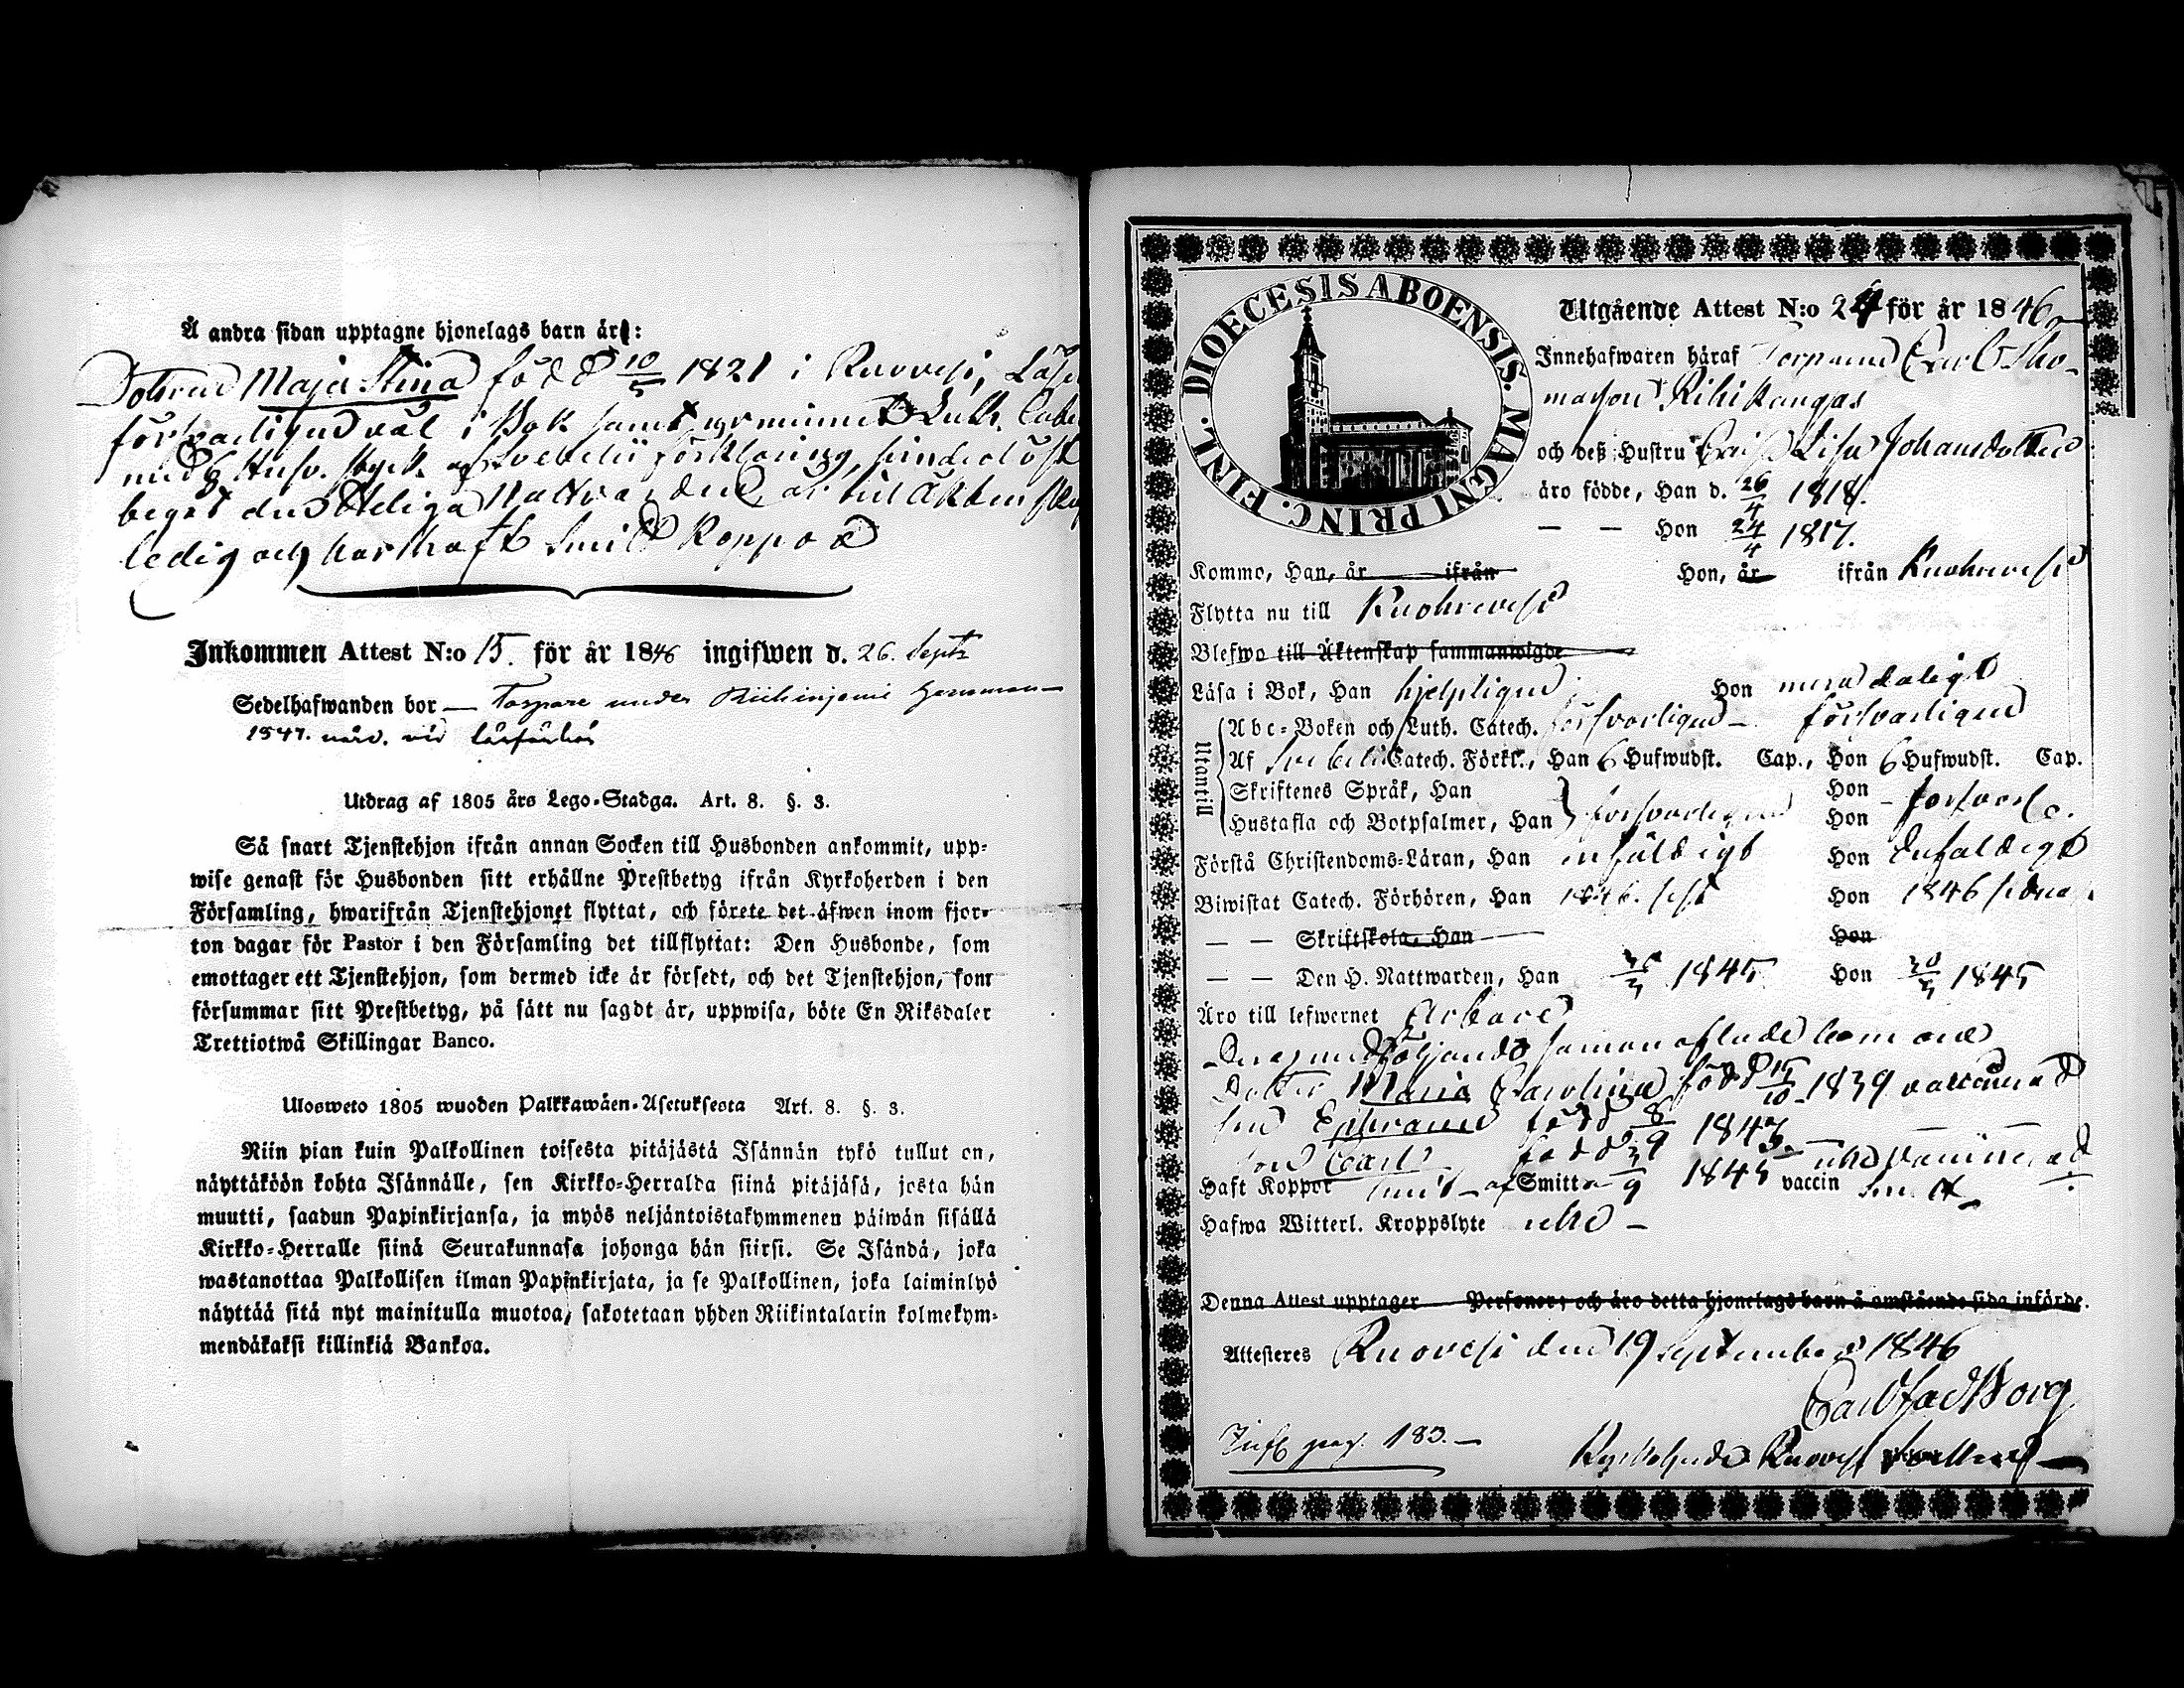 Å andra sidan upptagne hjonelags barn äro:
Maja Stina född 10/5 1821 i Ruovesi,
försvarligen väl i Bok samt ur minnet Luth.
med förklaring,
begått den Heliga Nattvarden, är till Äktenskap
ledig och har haft Smitt Koppor
Inkommen Attest N:o 15. för år 1846 ingifwen d. 26. Septr
Sedelhafwanden bor — Torpare under
1847. närv. vid läsförhör
Utdrag af 1805 års Lego-Stadga. Art. 8. §. 3.
Så snart Tjenstehjon ifrån annan Socken till Husbonden ankommit, upp-
wise genast för Husbonden sitt erhållne Prestbetyg ifrån Kyrkoherden i den
Församling, hwarifrån Tjenstehjonet flyttat, och förete det äfwen inom fjor-
ton dagar för Pastor i den Församling det tillflyttat: Den Husbonde, som
emottager ett Tjenstehjon, som dermed icke är försedt, och det Tjenstehjon, som
försummar sitt Prestbetyg, på sätt nu sagdt är, uppwisa, böte En Riksdaler
Trettiotwå Skillingar Banco.
Ulosweto 1805 wuoden Palkkawäen-Asetuksesta Art. 8. §. 3.
Niin pian kuin Palkollinen toisesta pitäjästä Isännän tykö tullut on,
näyttäköön kohta Isännälle, sen Kirkko-Herralda siinä pitäjäsä, josta hän
muutti, saadun Papinkirjansa, ja myös neljäntoistakymmenen päiwän sisällä
Kirkko-Herralle siinä Seurakunnasa johonga hän siirsi. Se Isändä, joka
wastanottaa Palkollisen ilman Papinkirjata, ja se Palkollinen, joka laiminlyö
näyttää sitä nyt mainitulla muotoa, sakotetaan yhden Riikintalarin kolmekym-
mendäkaksi killinkiä Bankoa.
DIOECESIS ABOENSIS. MAGNI PRINC. FINL.
Utgående Attest N:o 24 för år 1846
Innehafwaren häraf Torparen Carl Tho-
masson Rihikangas
och deß Hustru Lisa Johansdotter
äro födde, Han d. 26/4 1818.
— — Hon 24/4 1817.
Kommo, Han, år ifrån Hon, år ifrån Kuohrevesi
Flytta nu till Kuohrevesi
Blefwo till Äktenskap sammanwigde
Läsa i Bok, Han hjelpligen Hon mera daligt
Utantill
Abc-Boken och Luth. Catech. försvarligen — försvarligen
Af Svebelii Catech. Förkl., Han 6 Hufwudst. Cap., Hon 6 Hufwudst. Cap.
Skriftenes Språk, Han Hon
Hustafla och Botpsalmer, Han försvarligen Hon
Förstå Christendoms-Läran, Han enfäldigt Hon Enfaldigt
Biwistat Catech. Förhören, Han 1846. Hon 1846
— — Skriftskola, Han Hon
— — Den H. Nattwarden, Han 1845 Hon 1845
Äro till lefwernet Ärbare
sammanaflade barn äro
Dotter Maria Carolina född 15/10 1839 vaccinerad
son Ephraim född 8/9 1843
son Carl född 1845 vaccinerad
Haft Koppor af Smitt vaccin
Hafwa Witterl. Kroppslyte icke —
Denna Attest upptager Personer; och äro detta hjonelags barn å omstående sida införde.
Attesteres Ruovesi den 19 September 1846
Carl
Infl. pag. 183. —
Kyrkoherde Ruovesi